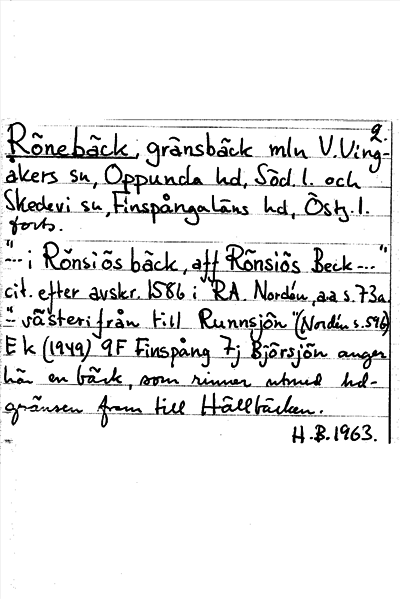 2.
Rönebäck, gränsbäck mln V.Ving-
åkers sn, Oppunda hd, Söd.l. och
Skedevi sn, Finspångaläns hd, Östg.l.
forts.
"--- i Rönsiös bäck, aff Rönsiös Beck ---"
cit. efter avskr. 1586 i RA. Nordén, aa s.73a
"- västerifrån till Runnsjön" (Nordén s.59b)
Ek (1949) 9F Finspång 7j Björsjön anger
här en bäck, som rinner utmed hd-
gränsen fram till Hällbäcken.
H.B.1963.